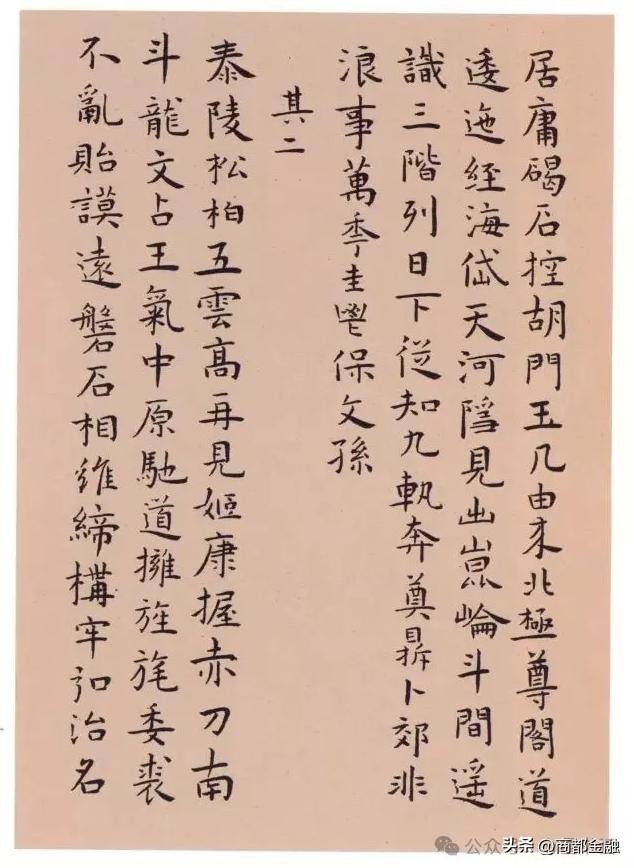 居庸碣石控胡門玉几由来北極尊閣道
逶迤經海岱天河隱見出崑崙斗間遥
識三階列日下從知九軌奔奠鼎卜郊非
浪事萬秊圭鬯保文孫
其二
泰陵松柏五雲高再見姬康握赤刀南
斗龍文占王氣中原馳道擁旌旄委裘
不亂貽謨遠磐石相維締構牢弘治名
公众
头条 @商都金融